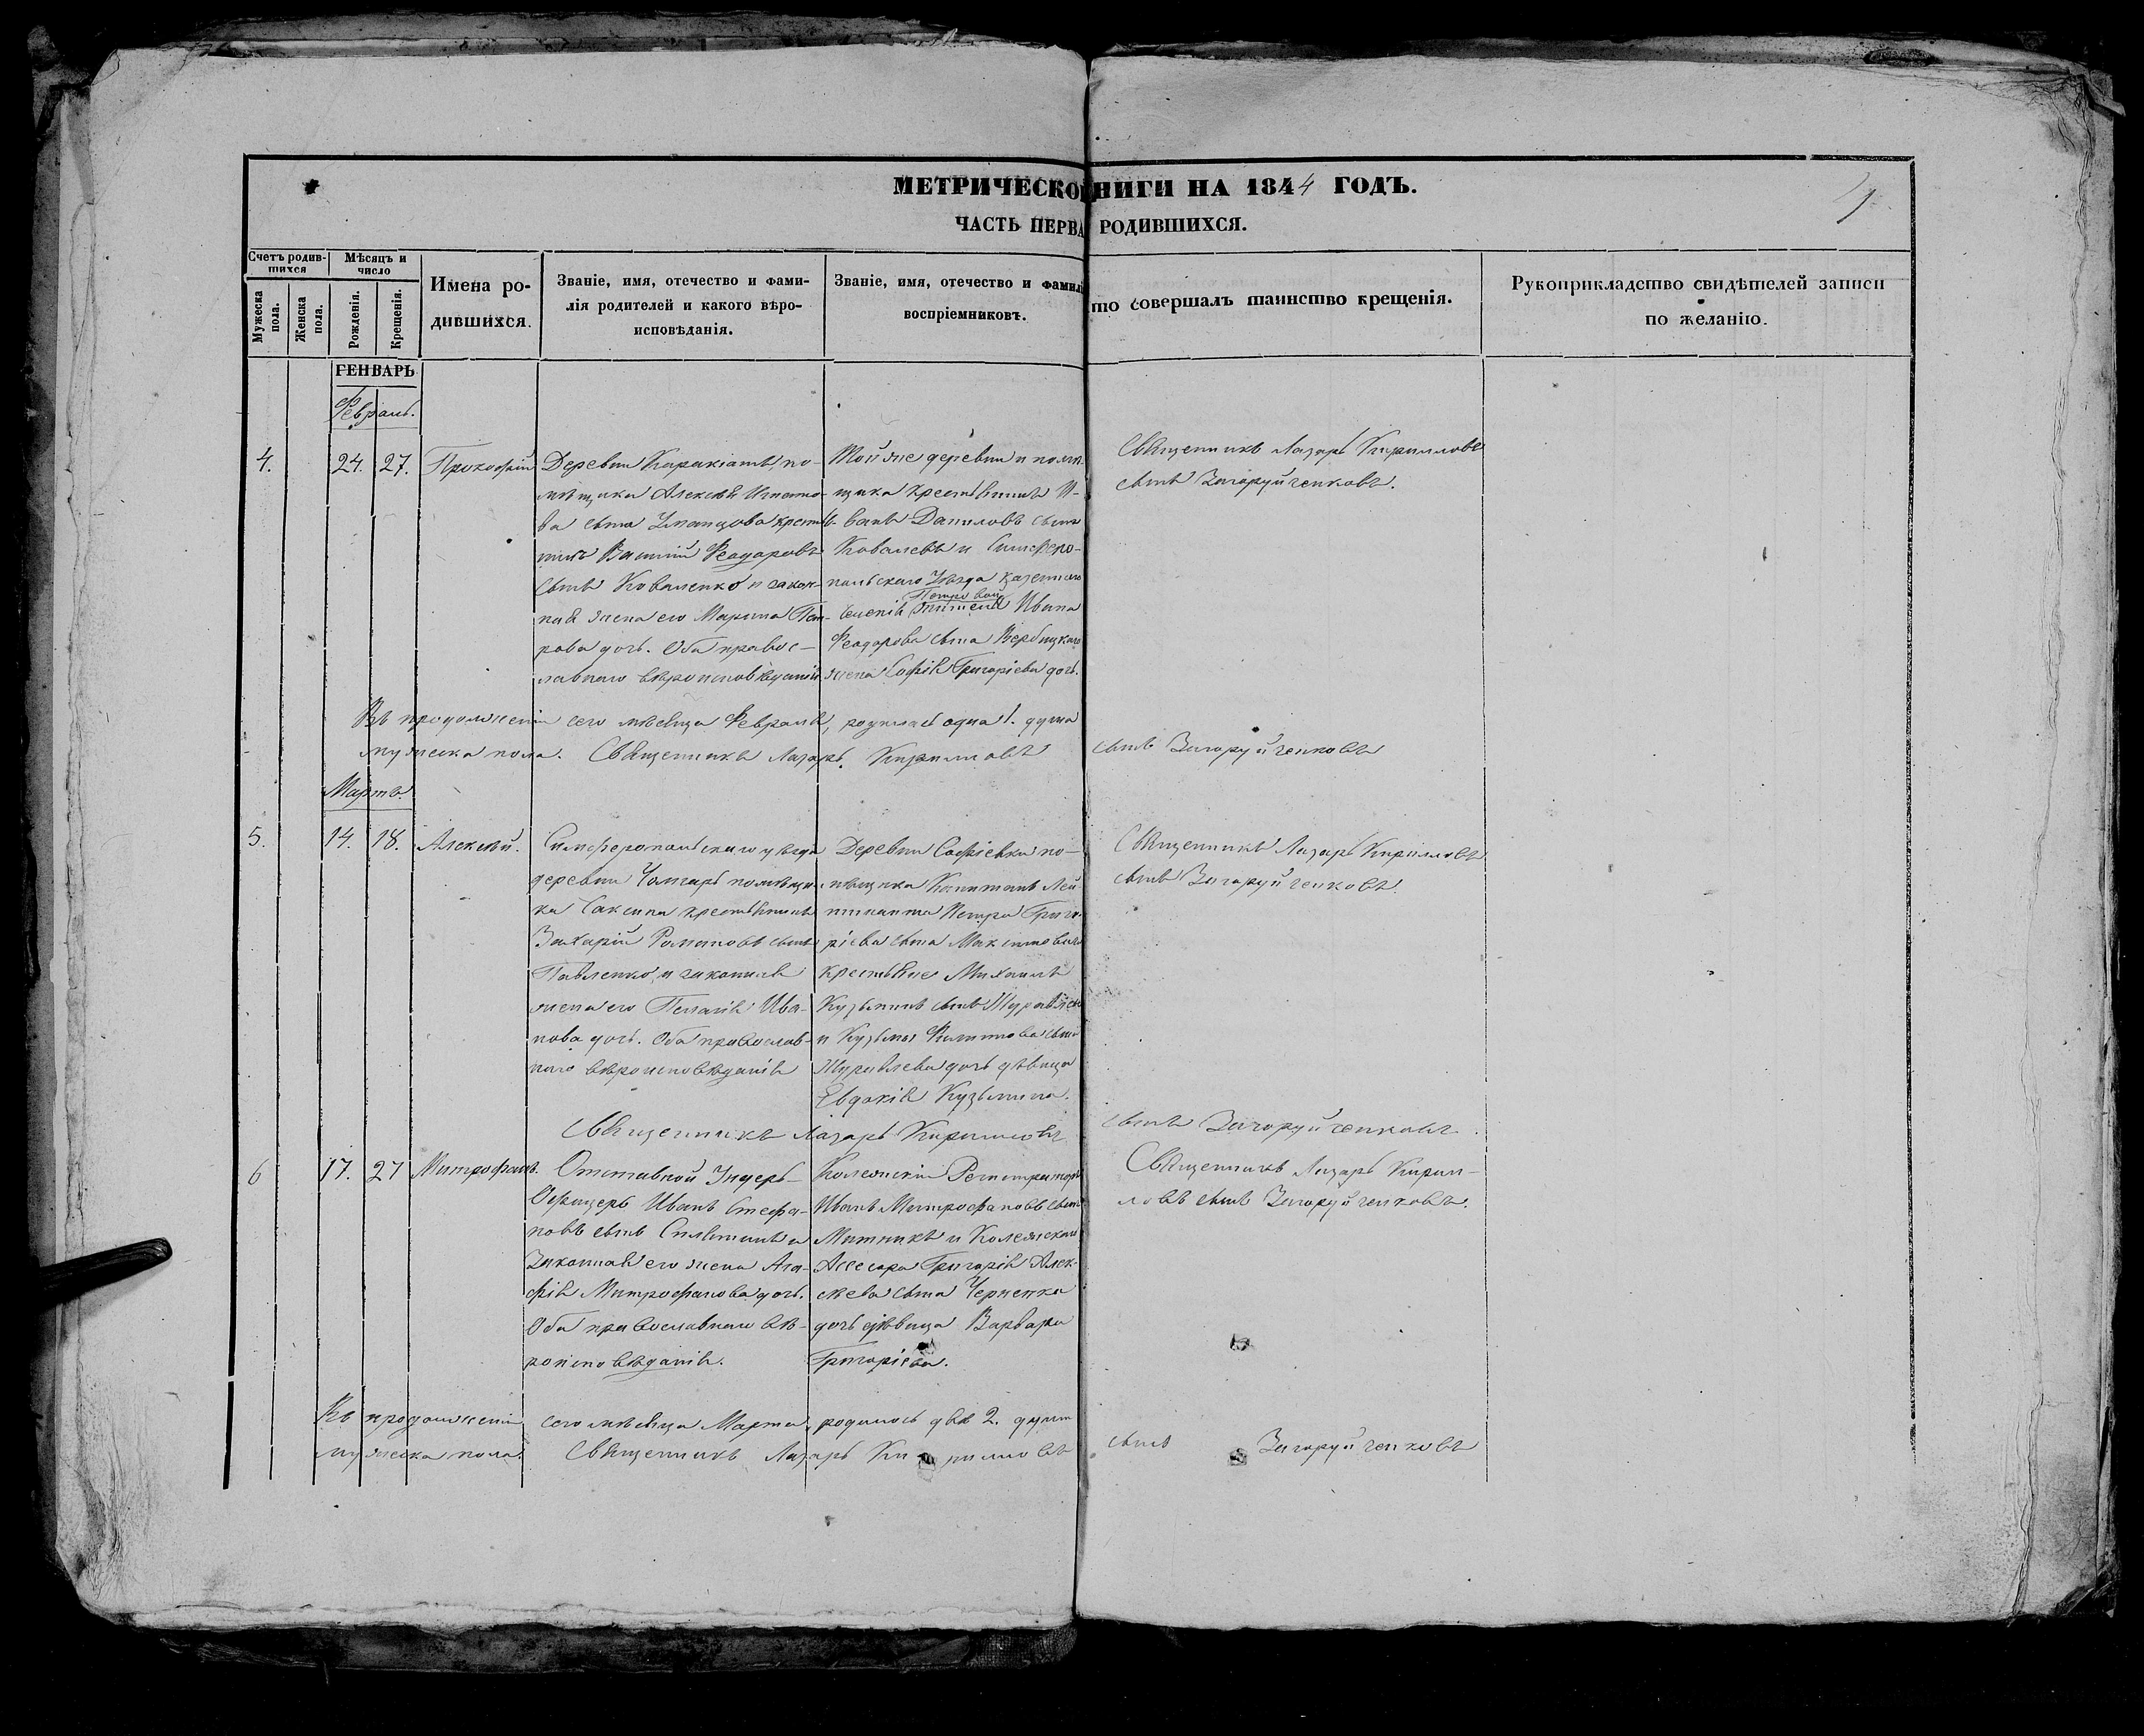 МЕТРИЧЕСКОЙ
НИГИ НА 1844 ГОДЪ.
4
ЧАСТЬ ПЕРВА
РОДИВШИХСЯ.
Счетъ родив-
шихся
Мужеска
пола.
Женска
пола.
Мѣсяцъ и
число
Рожденія.
Крещенія.
Имена ро-
дившихся.
Званіе, имя, отечество и фами-
лія родителей и какого вѣро-
исповѣданія.
Званіе, имя, отечество и фамил
воспріемниковъ.
то совершалъ таинство крещенія.
Рукоприкладство свидѣтелей записи
по желанію.
ГЕНВАРЬ
Февраль.
4.
24.
27.
Прокофій
Деревни Каракіатъ по-
мѣщика Алексѣя Игнато-
ва сына Уманцова крестья-
нинъ Василій Феодоровъ
сынъ Коваленко и закон-
ная жена его Марина Пет-
рова дочь. Оба правос-
лавнаго вѣроисповѣданія
Той же деревни и помѣ-
щика крестьянинъ И-
ванъ Даниловъ сынъ
Ковалевъ и Симферо-
польскаго Уѣзда казеннаго
Петровой
селенія Ивана
Феодорова сына Вербицкаго
жена Софія Григоріева дочь.
Священникъ Лазарь Кирилловъ
сынъ Загоруйченковъ.
Въ продолженіи сего мѣсяца Февраля, родилась одна 1. душа
мужеска пола. Священникъ Лазарь Кирилловъ сынъ Загоруйченковъ
Мартъ.
5.
14.
18.
Алексѣй.
Симферопольскаго уѣзда
деревни Чонгаръ помѣщи-
ка Саксина крестьянинъ
Захарій Романовъ сынъ
Павленко, и законная
жена его Пелагія Ива-
нова дочь. Оба православ-
наго вѣроисповѣданія
Деревни Софіевки по-
мѣщика Капитанъ Лей-
тинанта Петра Григо-
ріева сына Максимовича
крестьяне Михаилъ
Кузьминъ сынъ Журавлев
и Кузьмы Филиппова сына
Журавлева дочь дѣвица
Евдокія Кузьмина.
Священникъ Лазарь Кирилловъ
сынъ Загоруйченковъ.
Священникъ Лазарь Кирилловъ сынъ Загоруйченковъ.
6
17.
27
Митрофанъ.
Отставной Ундеръ-
Офицеръ Иванъ Стефа-
новъ сынъ и
Законная его жена Ага-
фія Митрофанова дочь.
Оба православнаго вѣ-
роисповѣданія.
Колежскій Регистраторъ
Иванъ Митрофановъ сынъ
Митникъ и Колежскаго
Ассесора Григорія Алек-
сѣева сына Черненка
дочь дѣвица Варвара
Григоріева.
Священникъ Лазарь Кирил-
ловъ сынъ Загоруйченковъ.
Въ продолженіи сего мѣсяца Марта, родилось двѣ 2. души
мужеска пола. Священникъ Лазарь Кирилловъ сынъ Загоруйченковъ